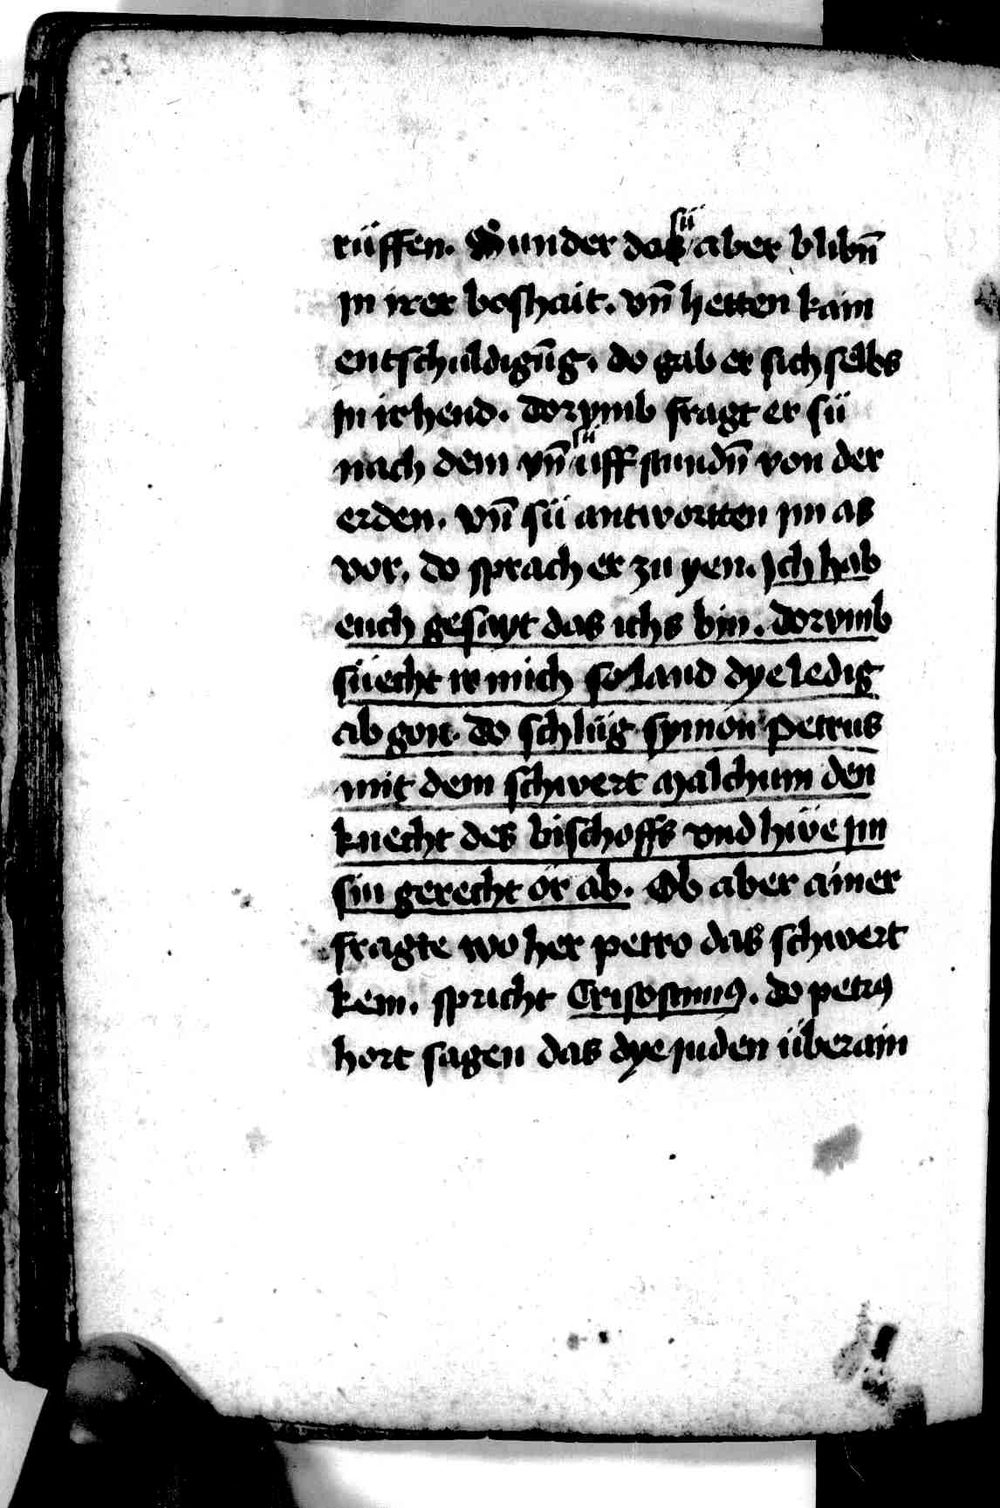 rüffen. Wunder das sü aber blibn̄
jn irer boshait. vn̄ hetten kain
entschuldigūg. do gab er sich selbs
jn ir hend. dorymb fragt er sü
nach dem vn̄ sü uff stundn̄ von der
erden. vn̄ sü antwortten jm as
vor. do sprach er zu yen. Jch hab
euch gesayt das ichs bin. dorvmb
süecht ir mich so land dye ledig
ab gon. do schlüg symon petrus
mit dem schwert malchum den
knecht des bischoffs vnd hiwe jm
sin gerecht ör ab. Ob aber ainer
fragte wo her petro das schwert
kem. spricht Crisostimꝰ. do petrꝰ
hort sagen das dye juden überain